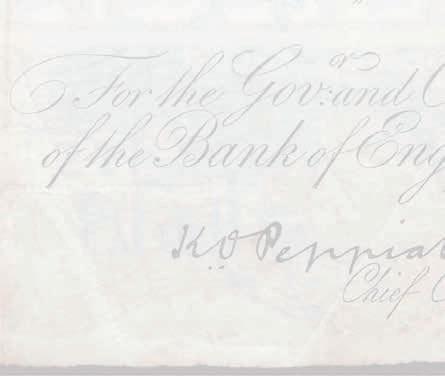 For the Govr: and C
of the Bank of Eng
K.O Peppiat
Chief C